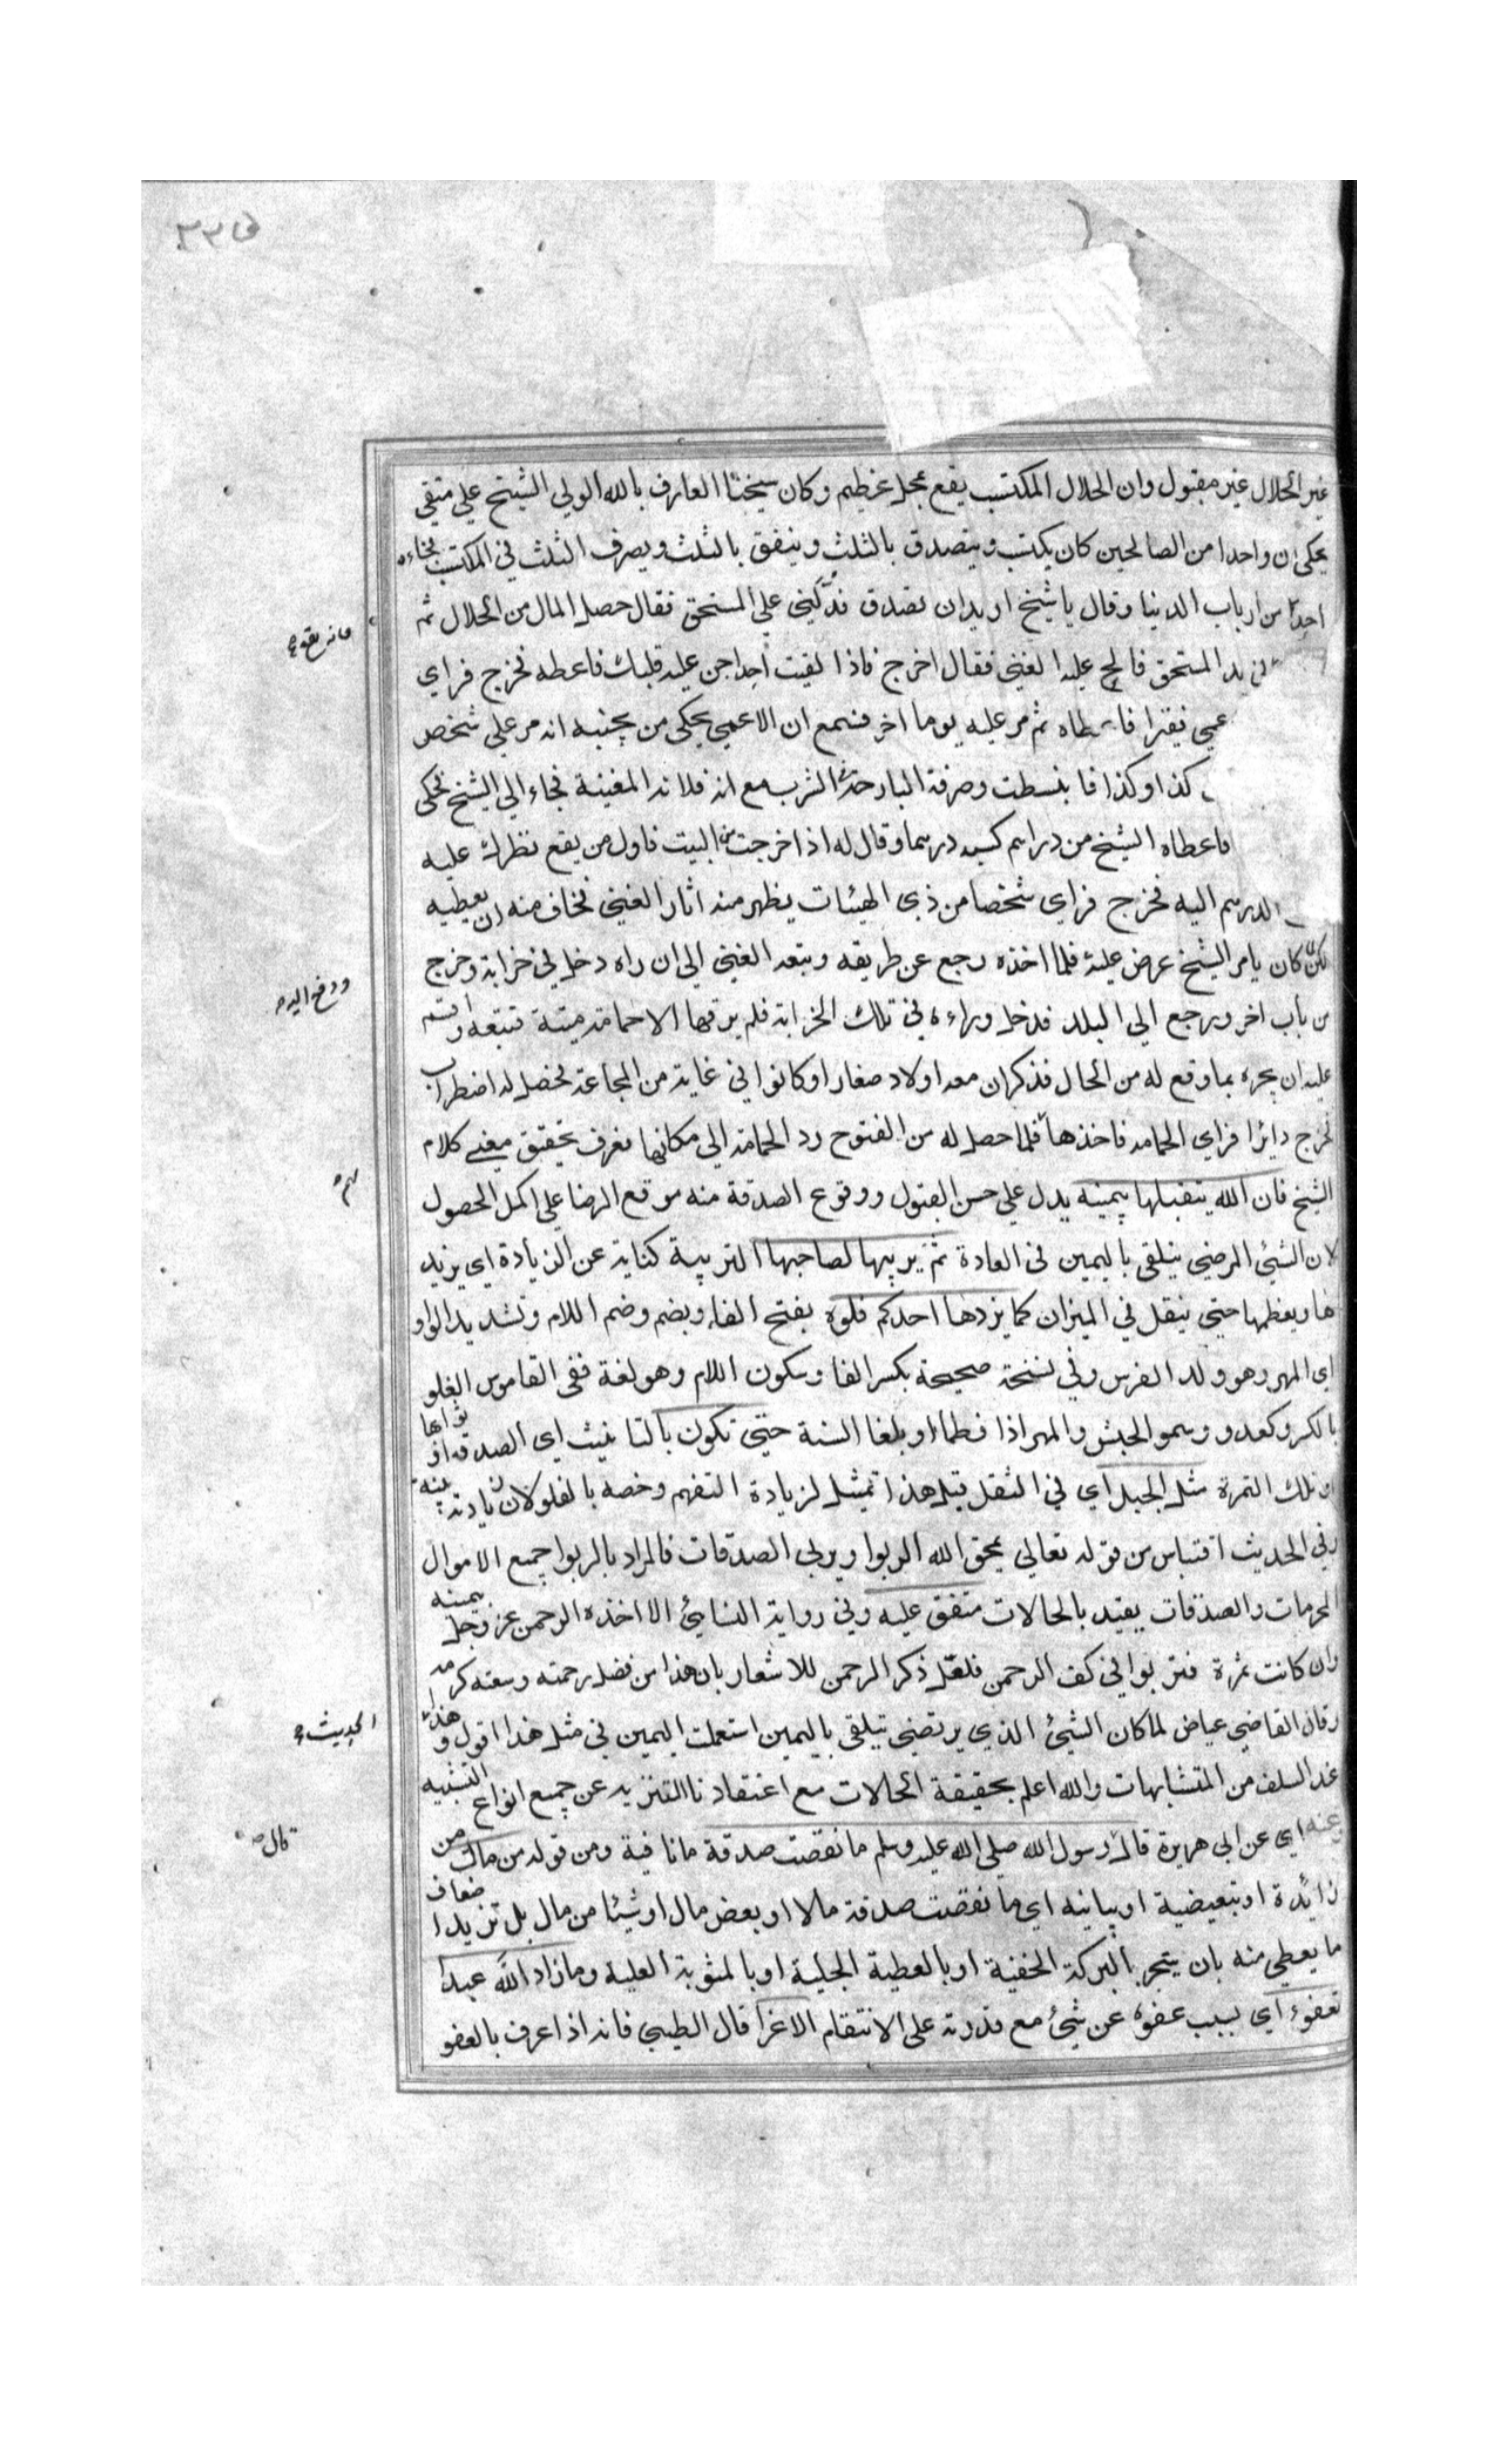 غير الحلال غير مقبول وان الحلال المكتسب يقع بمحل عظيم وكان شيخنا العارف بالله الولي الشيخ علي متقي
يحكي ان واحدا من الصالحين كان يكتسب ويتصدق بالثلث وينفق بالثلث ويصرف الثلث في المكتسب فجاءه
احدٌ من ارباب الدنيا وقال يا شيخ اريد ان تصدق فدلّني علي المستحق فقال حصل المال من الحلال ثم
يد المستحق فالح عليه الغني فقال اخرج فاذا لقيت احدا حن عليه قلبك فاعطه فخرج فراي
عمي فقيرا فاعطاه ثم مر عليه يوما اخر فسمع ان الاعمي يحكي من بجنبه انه مر علي شخص
كذا وكذا فانبسطت وصرفة البارحة الشرب مع ان فلانه المغنية فجاء الي الشيخ فحكي
فاعطاه الشيخ من دراهم كسبه درهما وقال له اذا خرجت من البيت فاول من يقع نظرك عليه
الدرهم اليه فخرج فراي شخصا من ذي الهيئات يظهر منه اثار الغني فخاف منه ان يعطيه
لكن كان يامر الشيخ عرض عليه فلما اخذه رجع عن طريقه وتبعه الغني الي ان راه دخل في خرابة وخرج
من باب اخر ورجع الي البلد فدخل وراءه في تلك الخرابة فلم ير فيها الا حمامة ميتة فتبعه واقسم
عليه ان يخبره بما وقع له من الحال فذكر ان معه اولاد صغار او كانوا في غاية من المجاعة فحصل له اضطراب
فخرج دائرا فراي الحمامه فاخذها فلما حصل له من الفتوح رد الحمامة الي مكانها فعرف تحقيق معني كلام
الشيخ فان الله يتقبلها بيمينه يدل علي حسن القبول ووقوع الصدقة منه موقع الرضا علي اكمل الحصول
لان الشيئ المرضي يتلقي باليمين في العادة ثم يربيها لصاحبها التربية كناية عن الزيادة اي يزيد
ها ويعظمها حتي يثقل في الميزان كما يربي احدكم فلوه بفتح الفا وبضم وضم اللام وتشديد الواو
اي المهر وهو ولد الفرس وفي نسخة صحيحة بكسر الفا وسكون اللام وهو لغة ففي القاموس الفلو
بالكسر وكعدو وسمو الجحش والمهر اذا فطما او بلغا السنة حتي تكون بالتانيث اي الصدقه او ثوابها
او تلك التمرة مثل الجبل اي في الثقل قيل هذا تمثيل لزيادة التفهم وخصه بالفلو لان زيادته بينة
وفي الحديث اقتباس من قوله تعالي يمحق الله الربوا ويربي الصدقات فالمراد بالربوا جميع الاموال
المحرمات والصدقات يقيد بالحالات متفق عليه وفي رواية النسايئ الا اخذه الرحمن عز وجل بيمينه
وان كانت تمرة فتربوا في كف الرحمن فلعل ذكر الرحمن للاشعار بان هذا من فضل رحمته وسعته كرمه
وقال القاضي عياض لما كان الشيئ الذي يرتضي يتلقي باليمين استعملت اليمين في مثل هذا اقول وهذا
عند السلف من المتشابهات والله اعلم بحقيقة الحالات مع اعتقادنا التنزيه عن جميع انواع التشبيه
وعنه اي عن ابي هريرة قال رسول الله صلي الله عليه وسلم ما نقصت صدقة ما نافية ومن قوله من مال من
زائدة او تبعيضية او بيانيه اي ما نقصت صدقة مالا او بعض مال او شيئا من مال بل تزيد اضعاف
ما يعطي منه بان ينجر بالبركة الخفية او بالعطية الجلية او بالمثوبة العلية وما زاد الله عبدا
بعفو اي بسبب عفوه عن شيئ مع قدرته علي الانتقام الا عزا قال الطيبي فانه اذا عرف بالعفو
ودفع اليه
الحديث
قال